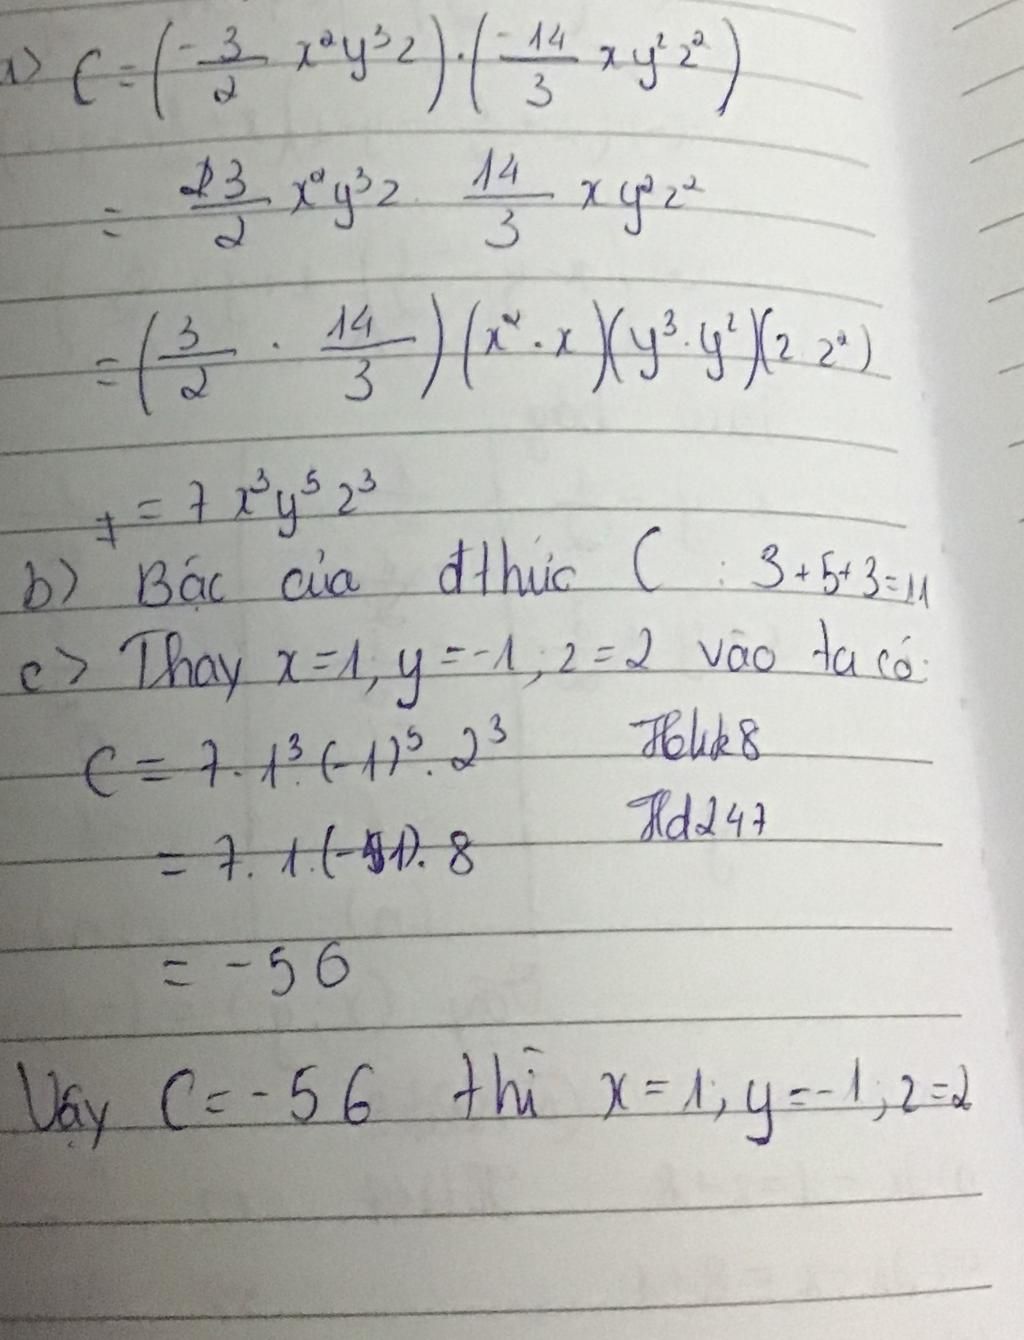 a) C = (-3/2 x²y³z) · (-14/3 xy²z²)
= 3/2 x²y³z · 14/3 xy²z²
= (3/2 · 14/3)(x² · x)(y³ · y²)(z · z²)
= 7x³y⁵z³
b) Bậc của đthức C : 3+5+3=11
c) Thay x=1, y=-1, z=2 vào ta có:
C = 7 · 1³ · (-1)⁵ · 2³
= 7 · 1 · (-1) · 8
= -56
Vậy C = -56 thì x=1; y=-1; z=2